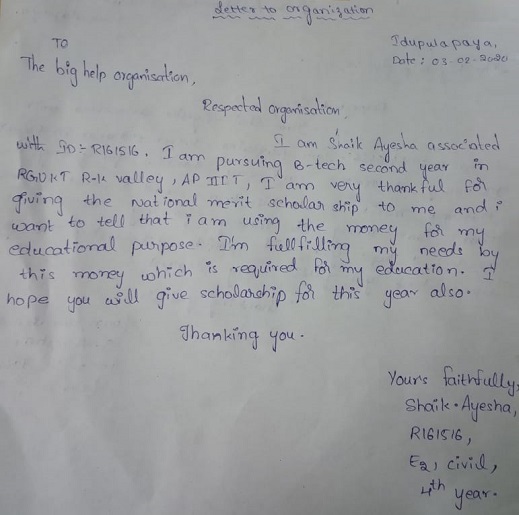 Letter to organization
Idupulapaya,
Date : 03-02-2020
TO
The big help organisation,
Respected organisation,
I am Shaik Ayesha associated
with ID:- R161516. I am pursuing B-tech second year in
RGUKT R-k valley, AP IIIT, I am very thankful for
giving the National merit scholar ship to me and i
want to tell that i am using the money for my
educational purpose. I'm fullfilling my needs by
this money which is required for my education. I
hope you will give scholarship for this year also.
Thanking you.
Yours faithfully,
Shaik. Ayesha,
R161516,
E2, civil,
4th year.